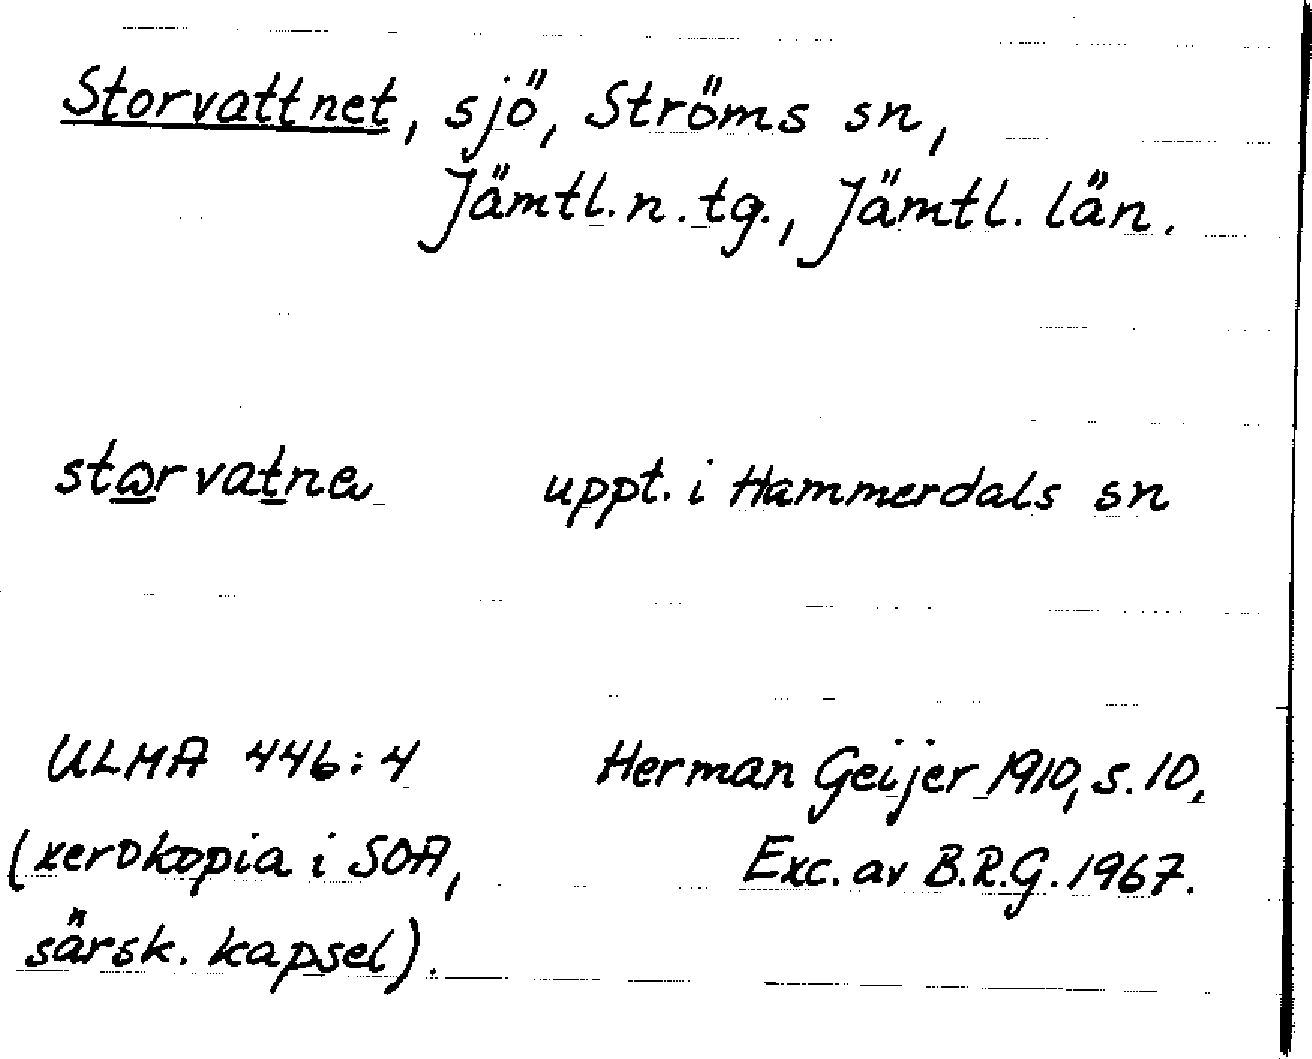 Storvattnet, sjö, Ströms sn,
Jämtl. n. tg., Jämtl. län.
storvatna uppt. i Hammerdals sn
ULMA 446:4 Herman Geijer 1910, s. 10.
(xerokopia i SOA, Exc. av B.R.G. 1967.
särsk. kapsel).